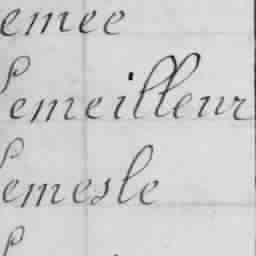 emee
Lemeilleur
Lemesle